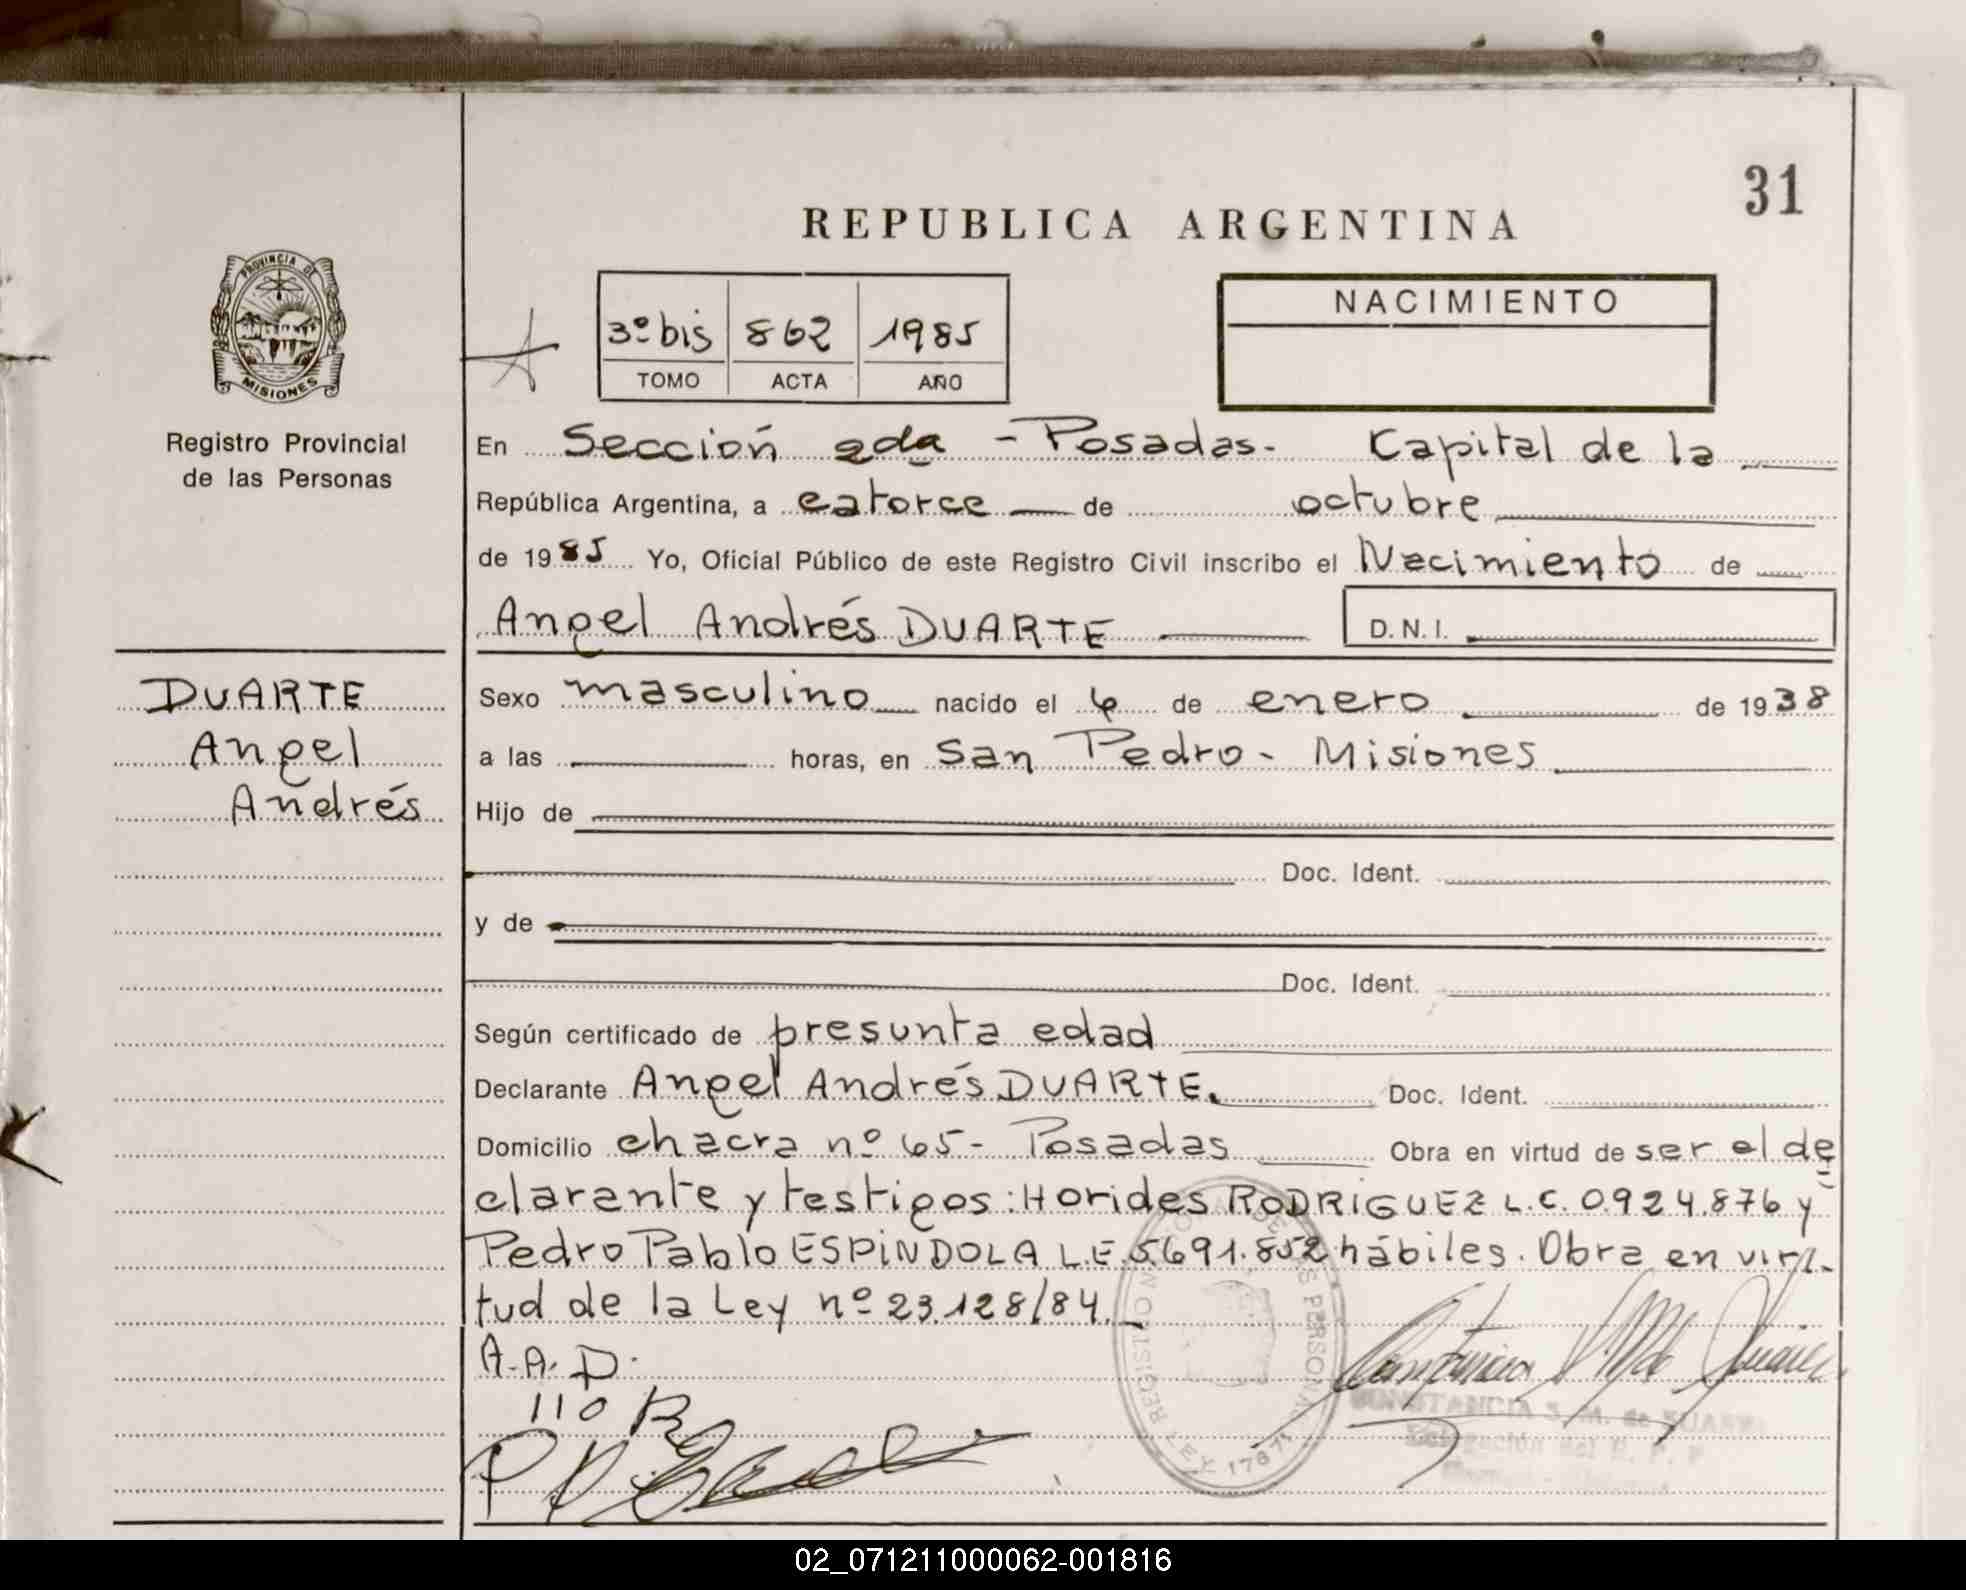 31
REPUBLICA ARGENTINA
PROVINCIA DE
MISIONES
3º bis 862 1985
TOMO ACTA AÑO
NACIMIENTO
Registro Provincial
de las Personas
En Sección 2da - Posadas - Capital de la
República Argentina, a catorce de octubre
de 1985 Yo, Oficial Público de este Registro Civil inscribo el Nacimiento de
Angel Andrés DUARTE D.N.I.
DUARTE
Angel
Andrés
Sexo masculino nacido el 6 de enero de 1938
a las horas, en San Pedro - Misiones
Hijo de
Doc. Ident.
y de
Doc. Ident.
Según certificado de presunta edad
Declarante Angel Andrés DUARTE. Doc. Ident.
Domicilio chacra nº 65 - Posadas Obra en virtud de ser el de
clarante y testigos: Horides RODRIGUEZ L.C. 0.924.876 y
Pedro Pablo ESPINDOLA L.E. 5.691.852 hábiles. Obra en vir-
tud de la Ley nº 23.128/84.
A.A.D.
CONSTANCIA S. M. de SUAREZ
02_071211000062-001816